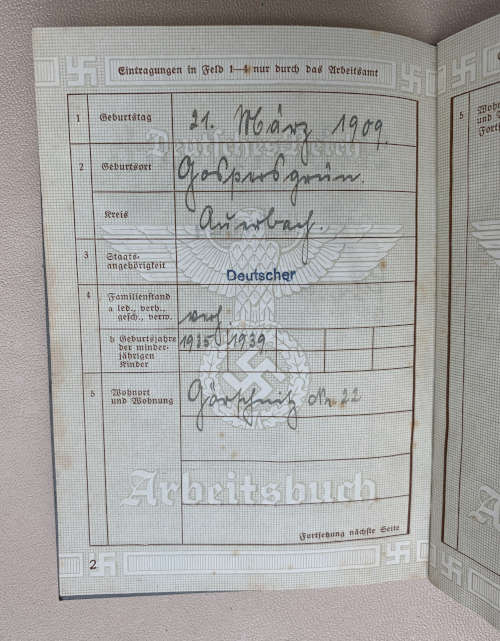 Eintragungen in Feld 1—4 nur durch das Arbeitsamt
Deutsches Reich
1 Geburtstag 21. März 1909.
2 Geburtsort Gospersgrün.
Kreis Auerbach.
3 Staats-
angehörigkeit Deutscher
4 Familienstand
a led., verh.,
gesch., verw. verh.
b Geburtsjahre 1935 1939
der minder-
jährigen
Kinder
5 Wohnort
und Wohnung Görschnitz Nr. 22
Arbeitsbuch
Fortsetzung nächste Seite
2
5